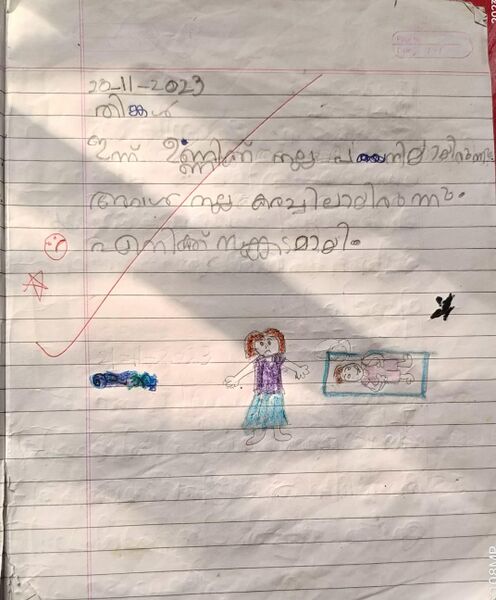 20-11-2023
തിങ്കൾ
ഇന്ന് ഉണ്ണിക്ക് നല്ല
അവൾ നല്ല കരച്ചിലായിരുന്നു.
എനിക്ക് സങ്കടമായി.